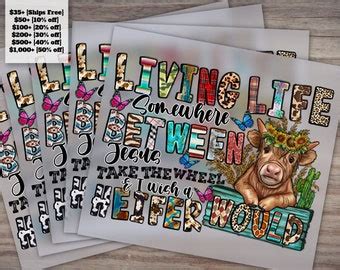 $35+ [Ships Free]
$50+ [10% off]
$100+ [20% off]
$200+ [30% off]
$500+ [40% off]
$1,000+ [50% off]
LIVING LIFE
Somewhere
BETWEEN
Jesus
TAKE THE WHEEL
& I wish a
HEIFER WOULD